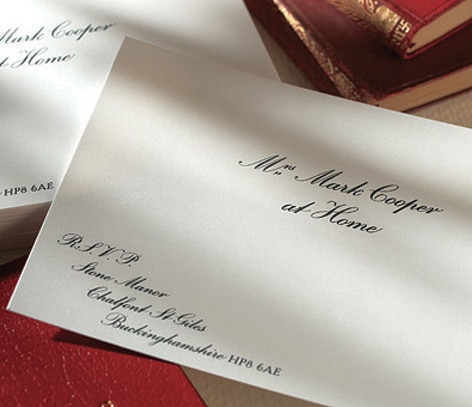 Mark Cooper
at Home
HP8 6AE
Mrs Mark Cooper
at Home
R.S.V.P.
Stone Manor
Chalfont St Giles
Buckinghamshire HP8 6AE